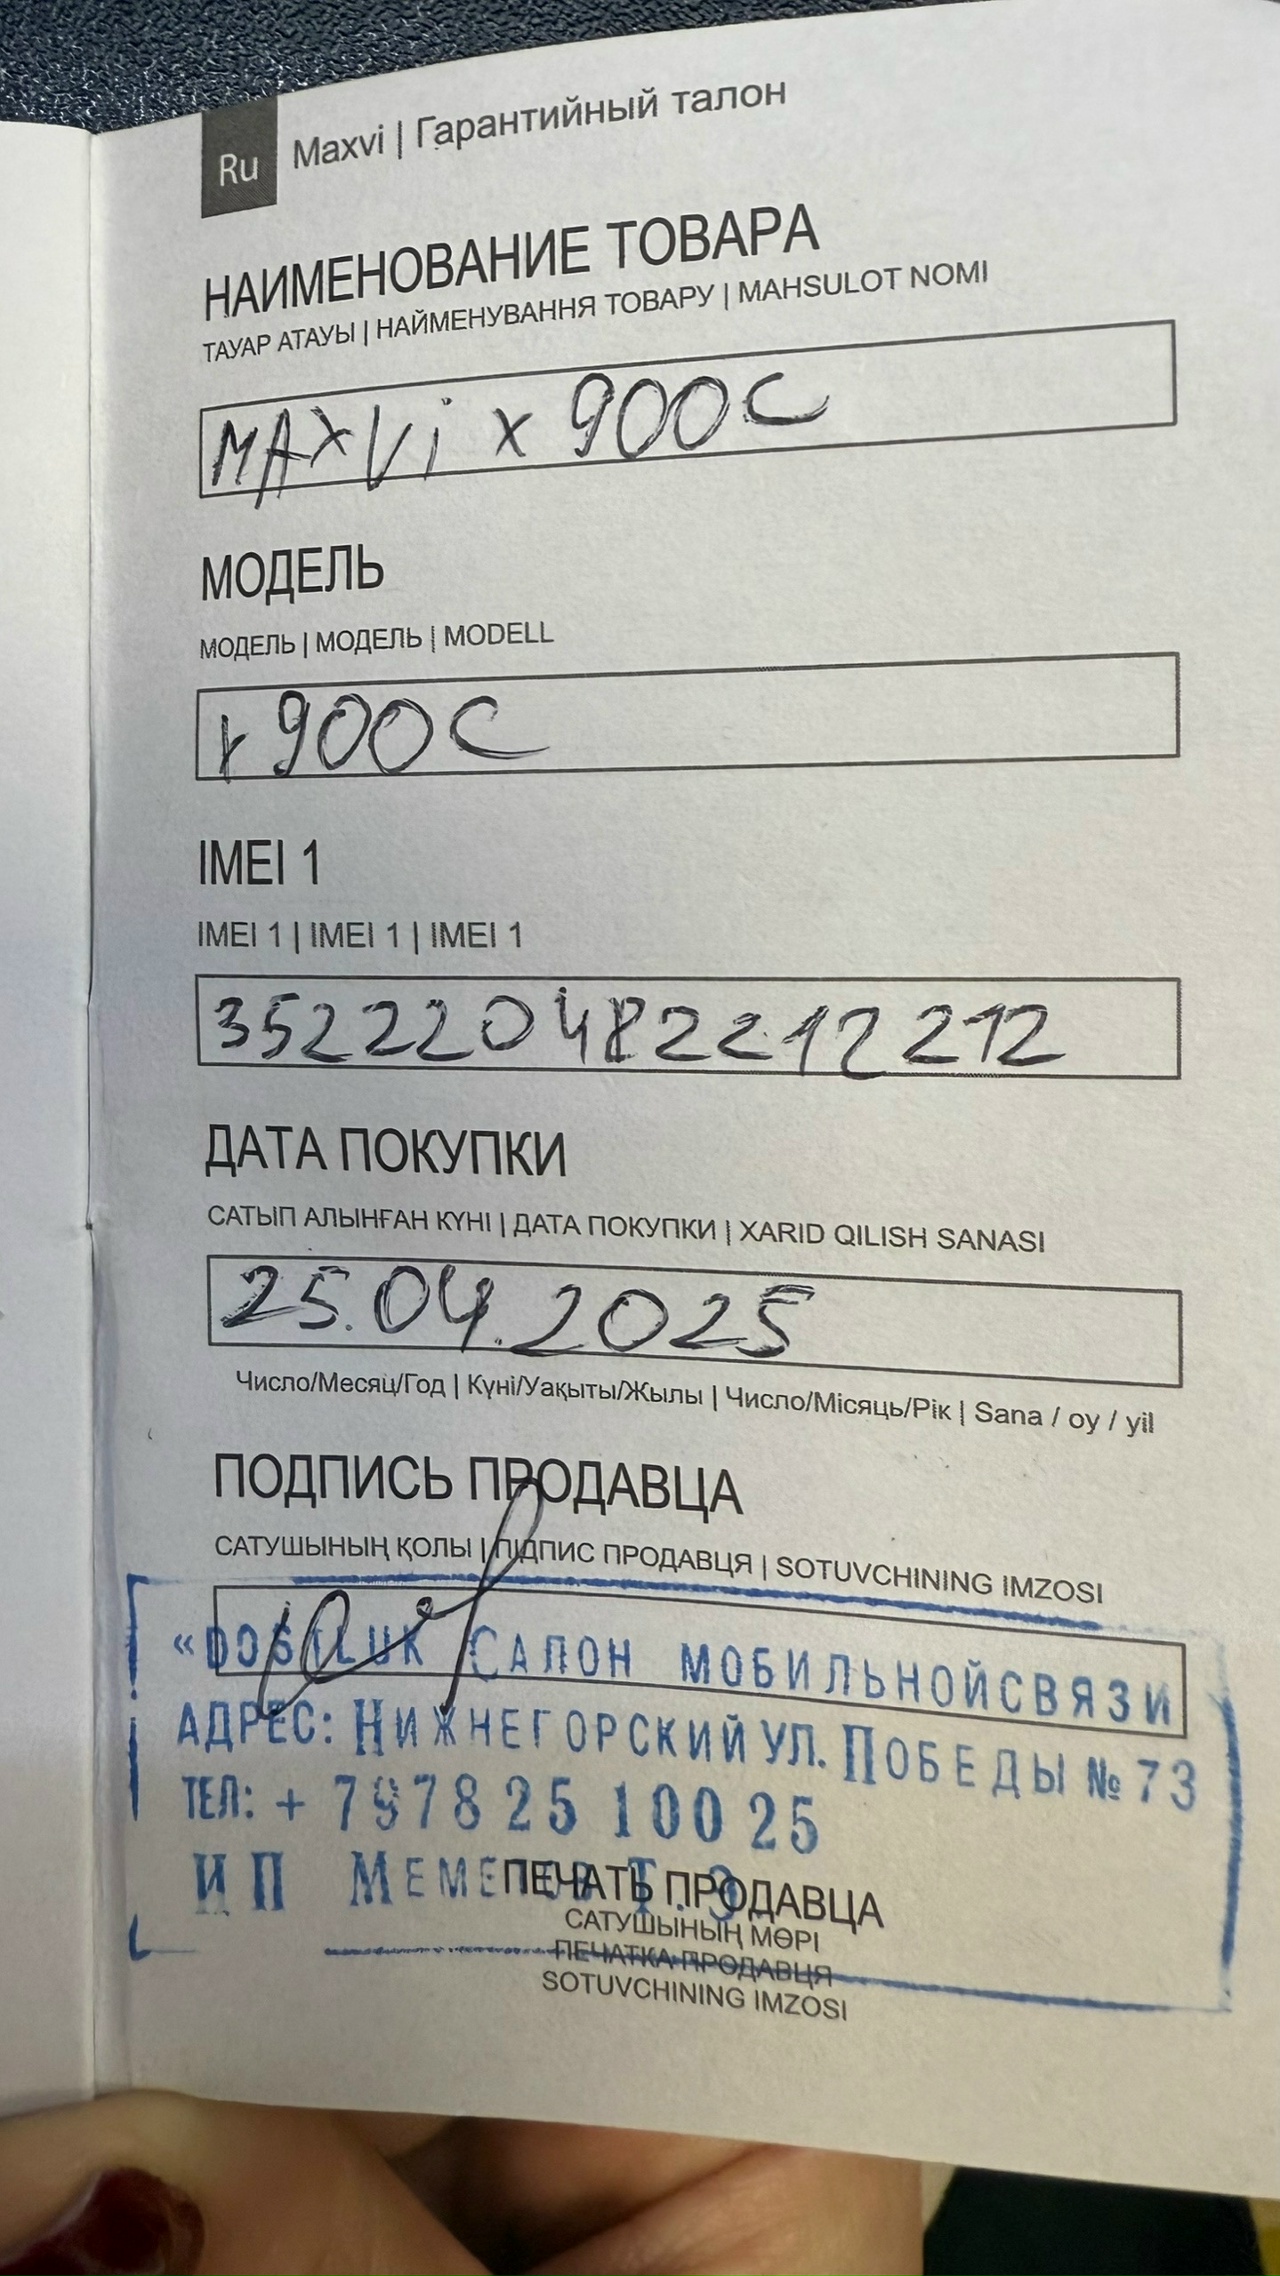 Ru Maxvi | Гарантийный талон
НАИМЕНОВАНИЕ ТОВАРА
ТАУАР АТАУЫ | НАЙМЕНУВАННЯ ТОВАРУ | MAHSULOT NOMI
MAXVi x 900C
МОДЕЛЬ
МОДЕЛЬ | МОДЕЛЬ | MODELL
x 900C
IMEI 1
IMEI 1 | IMEI 1 | IMEI 1
352220482212212
ДАТА ПОКУПКИ
САТЫП АЛЫНҒАН КҮНІ | ДАТА ПОКУПКИ | XARID QILISH SANASI
25.04.2025
Число/Месяц/Год | Күні/Уақыты/Жылы | Число/Місяць/Рік | Sana / oy / yil
ПОДПИСЬ ПРОДАВЦА
САТУШЫНЫҢ ҚОЛЫ | ПІДПИС ПРОДАВЦЯ | SOTUVCHINING IMZOSI
«DOSTLUK САЛОН МОБИЛЬНОЙСВЯЗИ
АДРЕС: НИЖНЕГОРСКИЙ УЛ. ПОБЕДЫ № 73
ТЕЛ: + 7978 25 100 25
ИП МЕМЕТОВ Т. Э.
ПЕЧАТЬ ПРОДАВЦА
САТУШЫНЫҢ МӨРІ
ПЕЧАТКА ПРОДАВЦЯ
SOTUVCHINING IMZOSI